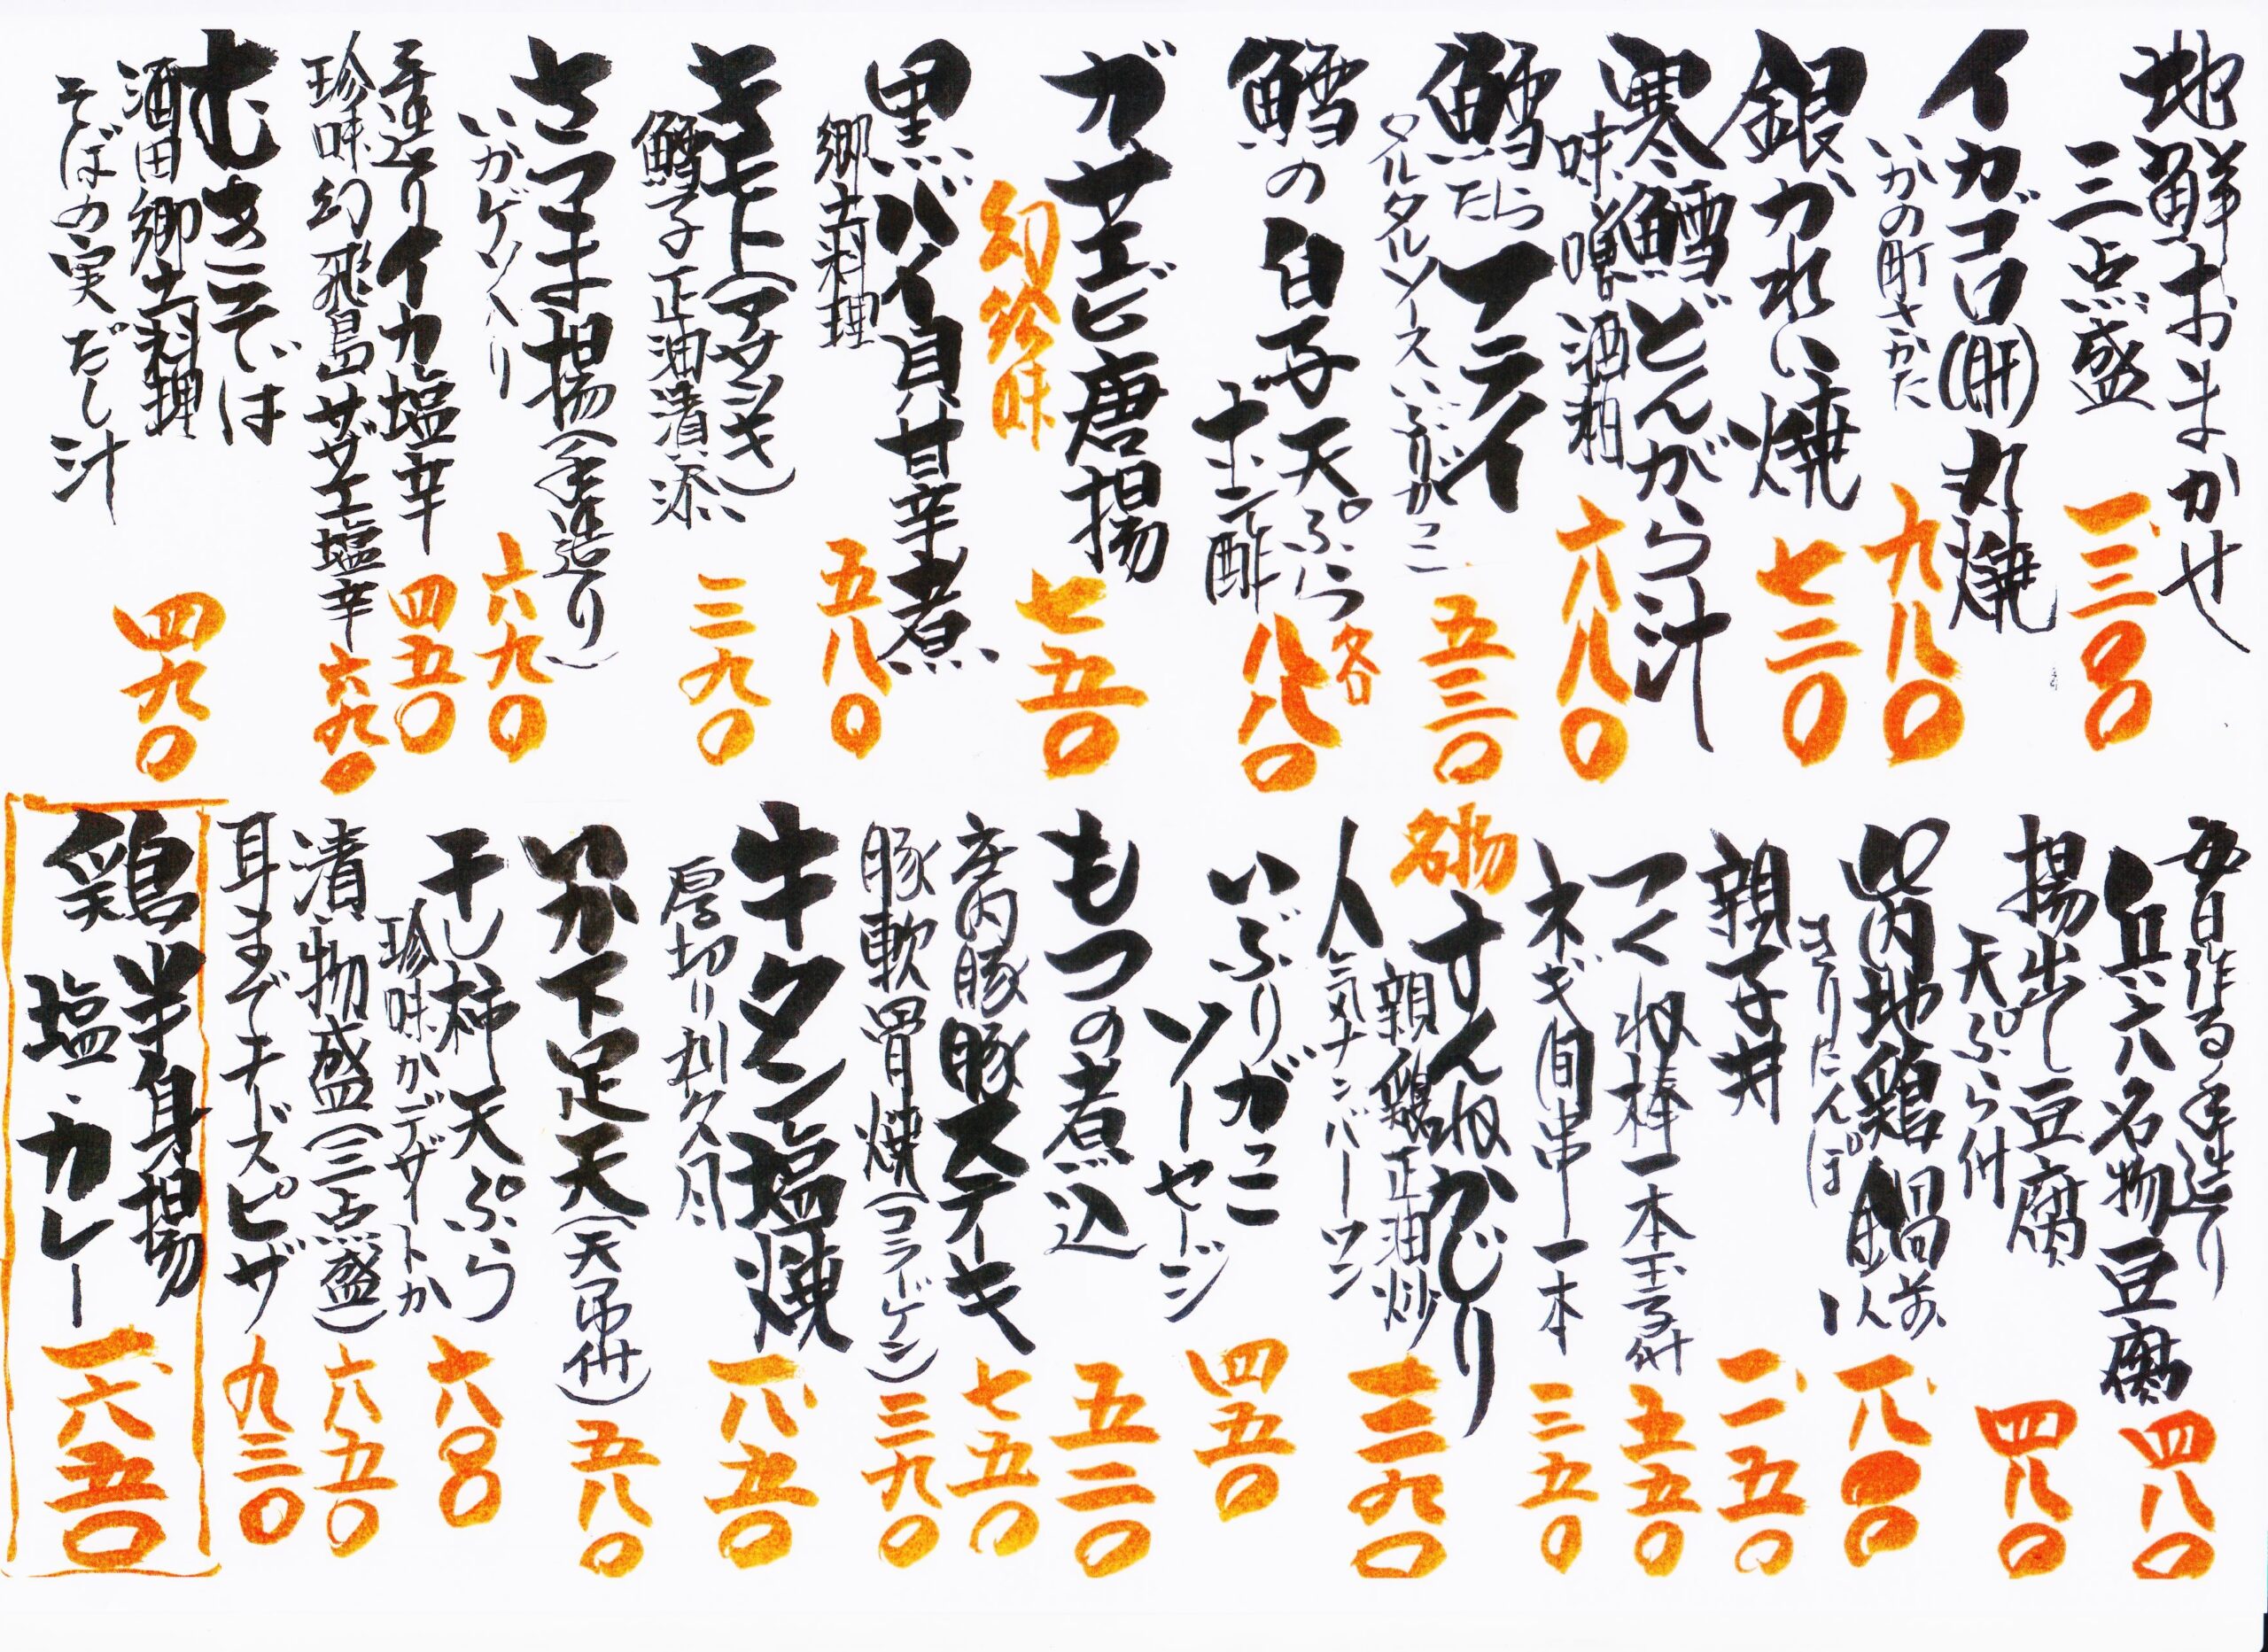 地鮮おまかせ
三点盛
一、三〇〇
イカゴロ(肝)丸焼
いかの町さかた
九八〇
銀がれい焼
七二〇
寒鱈どんがら汁
味噌酒粕
六八〇
鱈たらフライ
タルタルソースいぶりがっこ
五三〇
鱈の白子天ぷら
ポン酢
各
八八〇
ガサエビ唐揚
幻珍味
七五〇
黒バイ貝甘辛煮
郷土料理
五八〇
きモト(アサツキ)
鱈子正油漬添
三九〇
さつま揚(手造り)
いかゲソ入り
六九〇
手造りイカ塩辛
四五〇
珍味幻飛島サザエ塩辛
六九〇
むきそば
酒田郷土料理
そばの実だし汁
四九〇
毎日作る手造り
兵六名物豆腐
四八〇
揚出し豆腐
天ぷら付
四八〇
庄内地鶏鍋一人前
きりたんぽ
一、八〇〇
親子丼
一、一五〇
つくね棒一本玉子付
五五〇
ネギ間串一本
三五〇
名物
すんねかじり
親鶏正油炒
一、三九〇
人気ナンバーワン
いぶりがっこ
ソーセージ
四五〇
もつの煮込
五二〇
庄内豚豚ステーキ
七五〇
豚軟骨焼(コラーゲン)
三九〇
牛タン塩焼
厚切り利久風
一、八五〇
いか下足天(天吊付)
五八〇
干し柿天ぷら
珍味かデザートか
六八〇
漬物盛(三点盛)
六五〇
耳までチーズピザ
九三〇
鶏半身揚
塩・カレー
一、六五〇